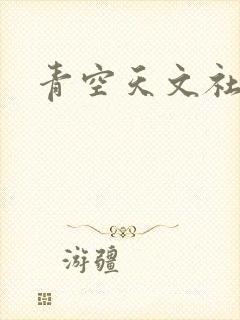 青空天文社
游疆